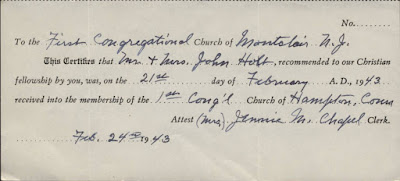 No.
To the First Congregational Church of Montclair N.J.
This Certifies that Mr. & Mrs. John Holt, recommended to our Christian
fellowship by you, was, on the 21st day of February A.D., 1943
received into the membership of the 1st Cong'l Church of Hampton, Conn
Attest (Mrs) Jennie M. Chapel Clerk.
Feb. 24th 1943